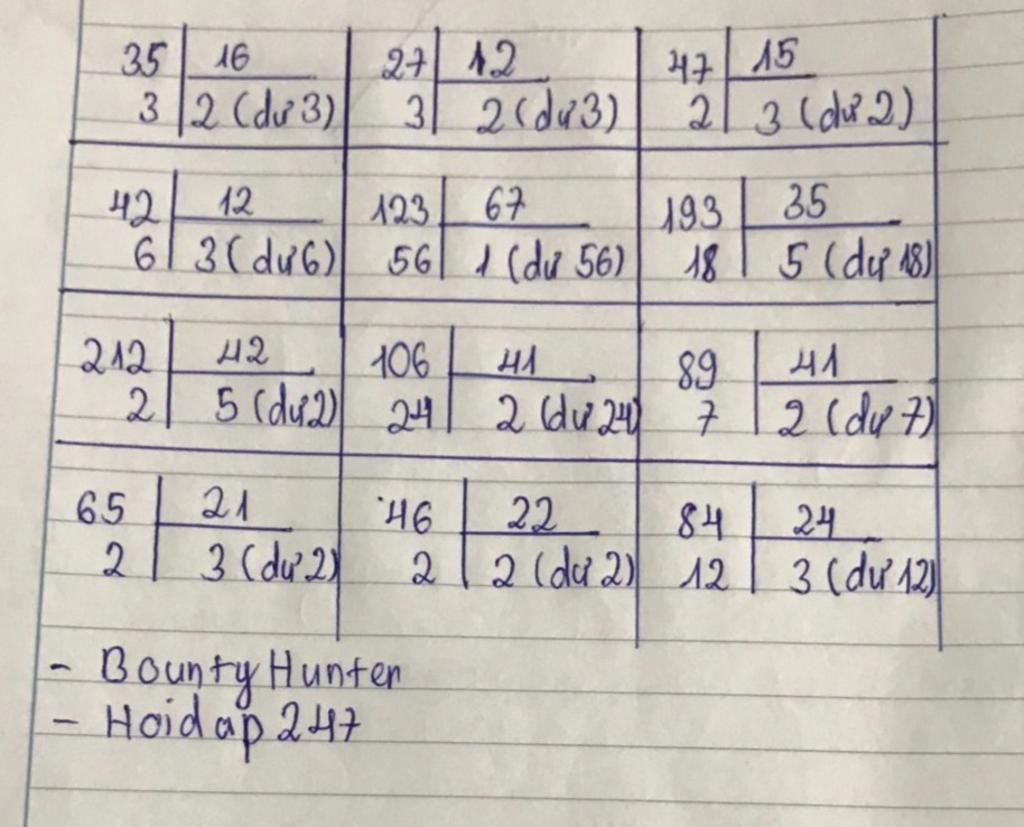 35 16 27 12 47 15
3 2 (dư 3) 3 2 (dư 3) 2 3 (dư 2)
42 12 123 67 193 35
6 3 (dư 6) 56 1 (dư 56) 18 5 (dư 18)
212 42 106 41 89 41
2 5 (dư 2) 24 2 (dư 24) 7 2 (dư 7)
65 21 46 22 84 24
2 3 (dư 2) 2 2 (dư 2) 12 3 (dư 12)
- Bounty Hunter
- Hoidap 247